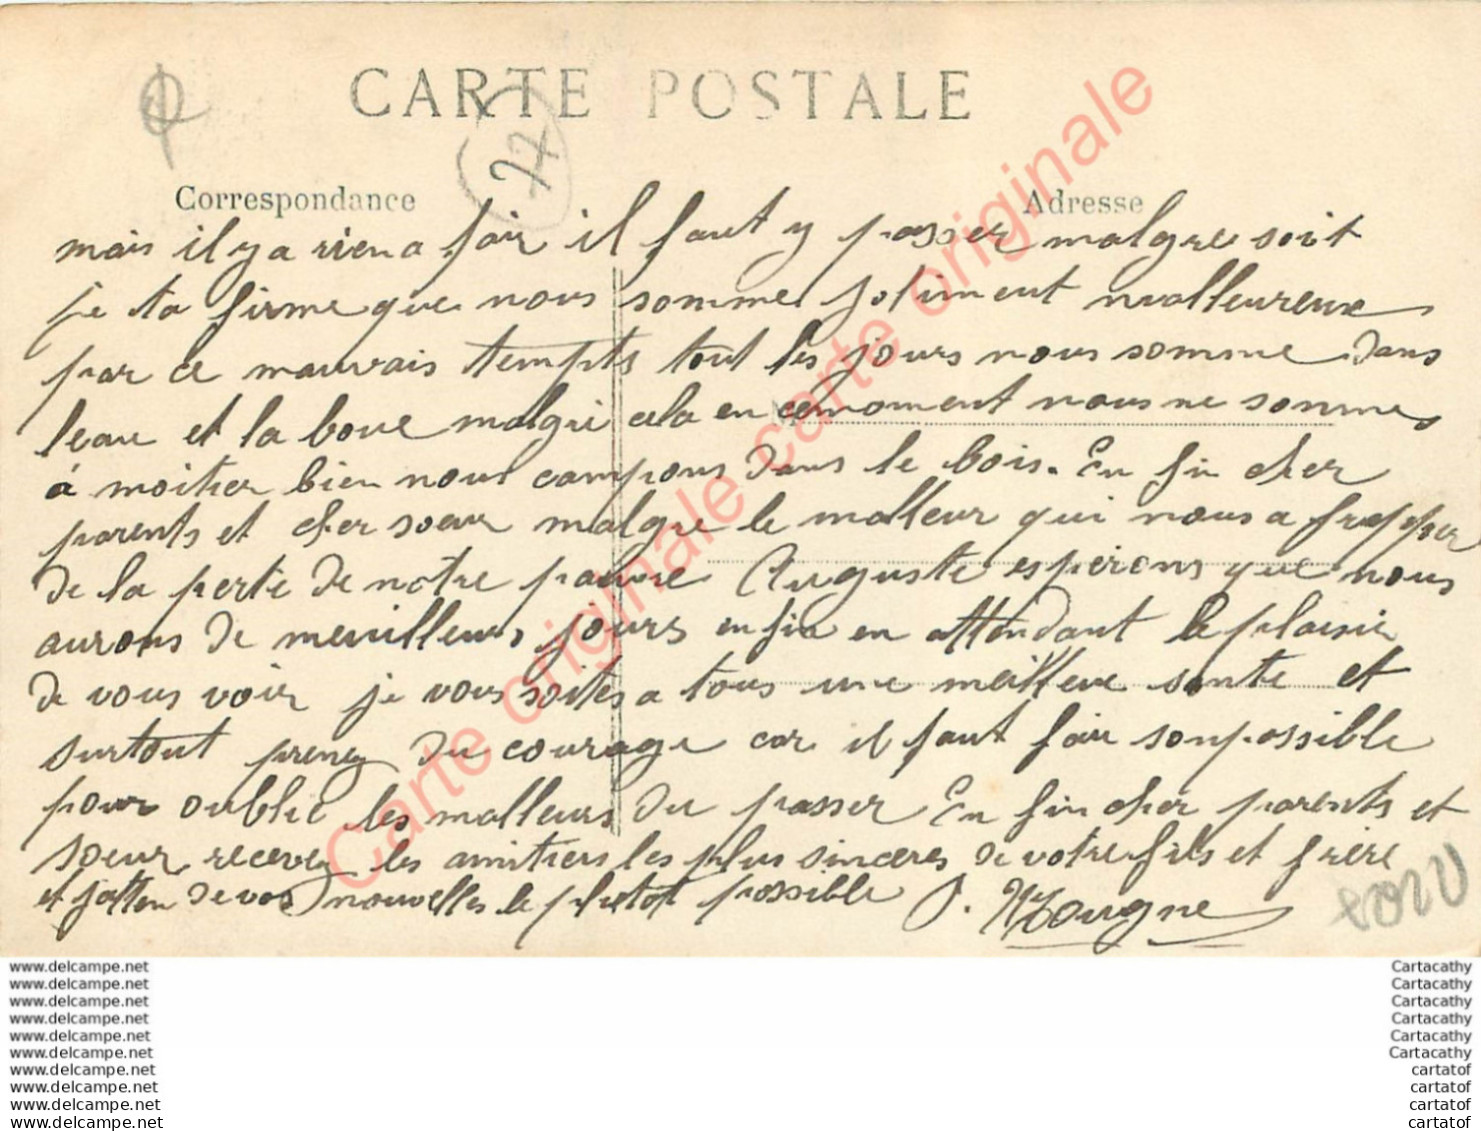 CARTE POSTALE
77
Correspondance
Adresse
mais il y a rien a fair il faut y passer malgre soit
je ta firme que nous somme joliment malleureux
par ce mauvais tempts tout les jours nous somme dans
leau et la boue malgré cela en ce moment nous ne somme
à moitier bien nous campons dans le bois. En fin cher
parents et cher soeur malgre le malleur qui nous a frapper
de la perte de notre pauvre Auguste esperons que nous
aurons de meuilleurs jours enfin en attendant le plaisir
de vous voir je vous soites a tous une meilleue sante et
surtout prenez du courage car il faut fair sonpossible
pour oublié les malleurs du passer En fin cher parents et
soeur recever les amitiers les plus sinceres de votre fils et frère
et jatten de vos nouvelles le plutot possible P. Mougne
Carte originale carte originale
www.delcampe.net
www.delcampe.net
www.delcampe.net
www.delcampe.net
www.delcampe.net
www.delcampe.net
www.delcampe.net
www.delcampe.net
www.delcampe.net
www.delcampe.net
Cartacathy
Cartacathy
Cartacathy
Cartacathy
Cartacathy
Cartacathy
cartatof
cartatof
cartatof
cartatof